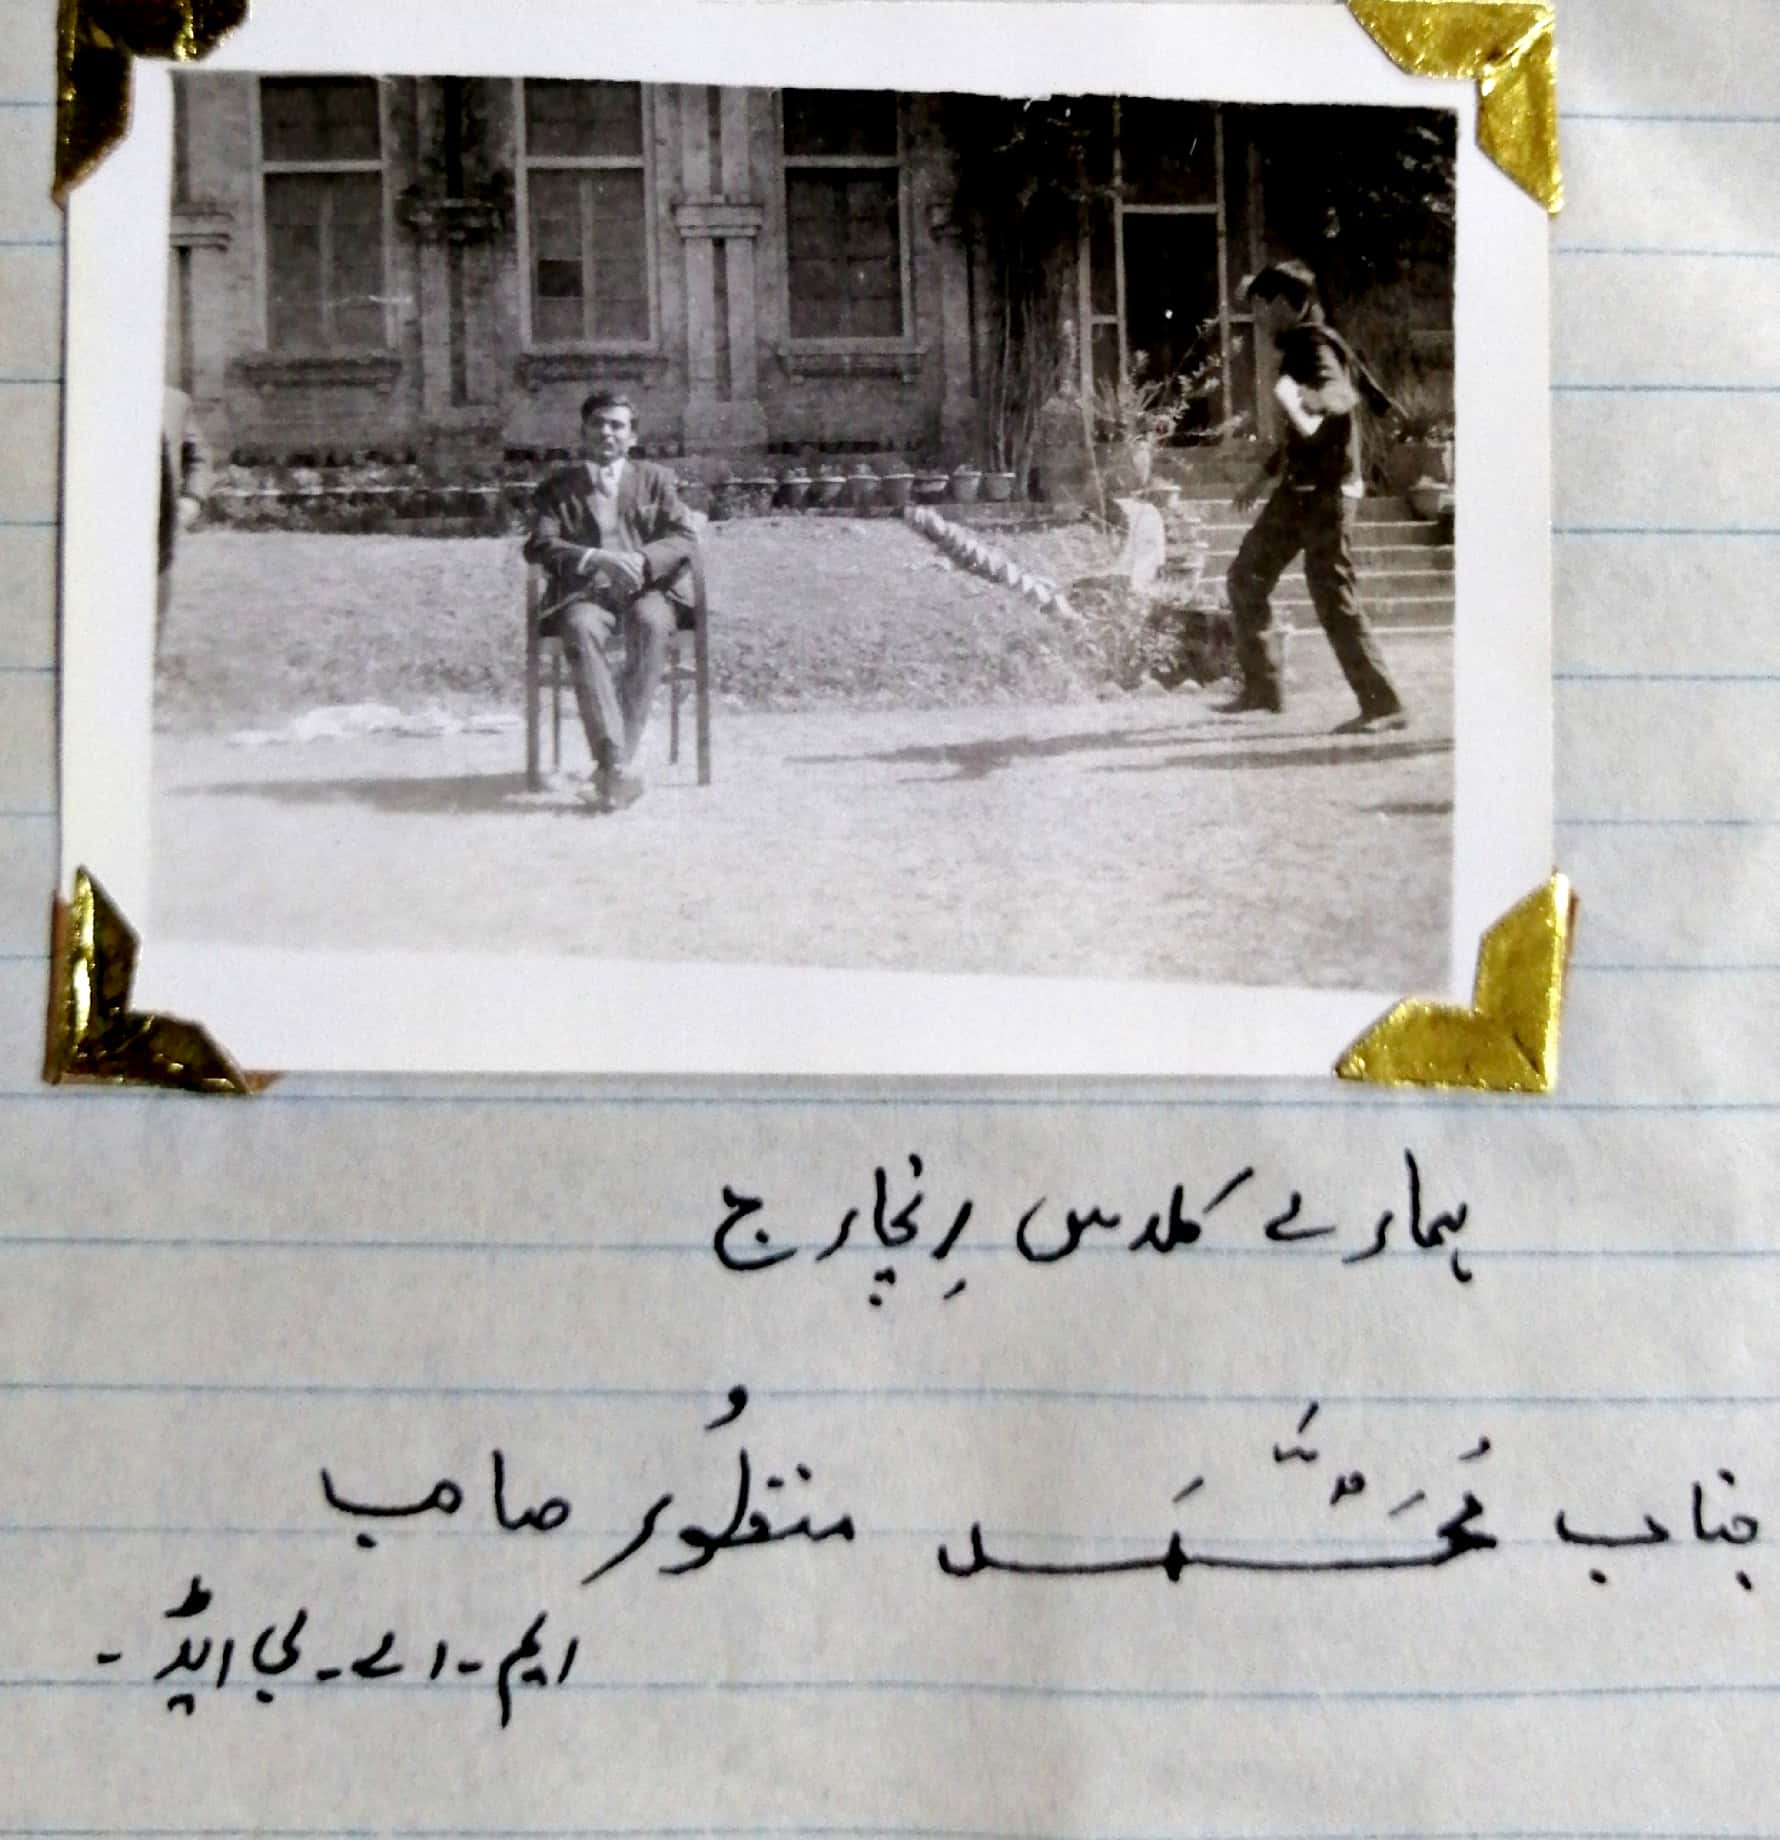 ہمارے کلاس اِنچارج
جناب مُحَمَّد منظُور صاحب
ایم-اے-بی ایڈ-